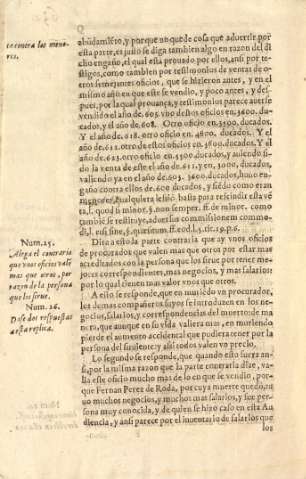 abũdamẽte, y porque no quede cosa que aduertir por
esta parte, es justo se diga tambien algo en razon del di
cho engaño, el qual esta prouado por ellos, ansi por te-
stigos, como tambien por testimonios de ventas de o-
tros semejantes oficios, que se hizieron antes, y en el
mismo año en que este se vendio, y poco antes, y des-
pues, por la qual prouança, y testimonios parece auerse
vendido el año de 605. vno destos oficios en 5600. du-
cados, y el año de 608. Otro oficio en 5300. ducados.
Y el año de 618. otro oficio en 4800. ducados. Y el
año de 622. otro destos oficios en 5800. ducados. Y el
año de 623. otro oficio en 5500 ducados, y auiendo si-
do la venta de este el año de 611. y en, 3000, ducados,
valiendo ya en el año de 605. 5600. ducados, huuo en-
gaño contra ellos de 2600 ducados, y siẽdo como eran
menores, qualquiera lesiõ basta para rescindir esta vẽ
ta, l. quod si minor, §. non semper. ff. de minor. como
tambiẽ se restituye, aduersus commissionem commo-
di, l.
Dira a esto la parte contraria que ay vnos oficios
de procurador que valen mas que otros por estar mas
acreditados con la persona que los sirue por tener me-
jores correspondientes, mas negocios, y mas salarios:
por lo qual tienen mas valor vnos que otros.
A esto se responde, que en muriẽdo vn procurador,
los demas compañeros suyos se introduzen en los ne-
gocios, salarios, y correspondencias del muerto: de ma
nera, que aunque en su vida valiera mas, en muriendo
pierde el aumento accidental que pudiera tener por la
persona del siruiente: y assi todos valen vn precio.
Lo segundo se responde, que quando esto fuera an-
si, por la misma razon que la parte contraria dize, va-
lia este oficio mucho mas de lo en que se vendio, por-
que Fernan Perez de Roda, por cuya muerte quedò, tu
uo muchos negocios, y muchos mas salarios, y fue per-
sona muy conocida, y de quien se hizo caso en esta Au
diencia, y ansi parece por el inuentario de salarios que
los
en contra los meno-
res.
Num. 25.
Alega el contrario
que vnos oficios valẽ
mas que otros, por
razon de la persona
que los sirue.
Num. 26.
Dãse dos respuestas
a esta replica.